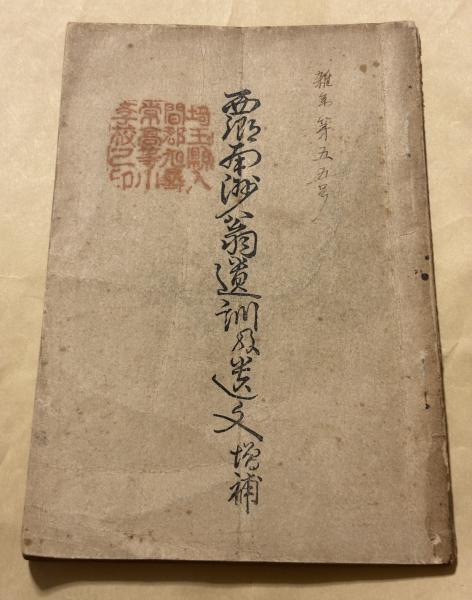 第五五号
西郷南洲翁遺訓及遺文 増補
埼玉縣入
間郡尋
常高等小
學校之印